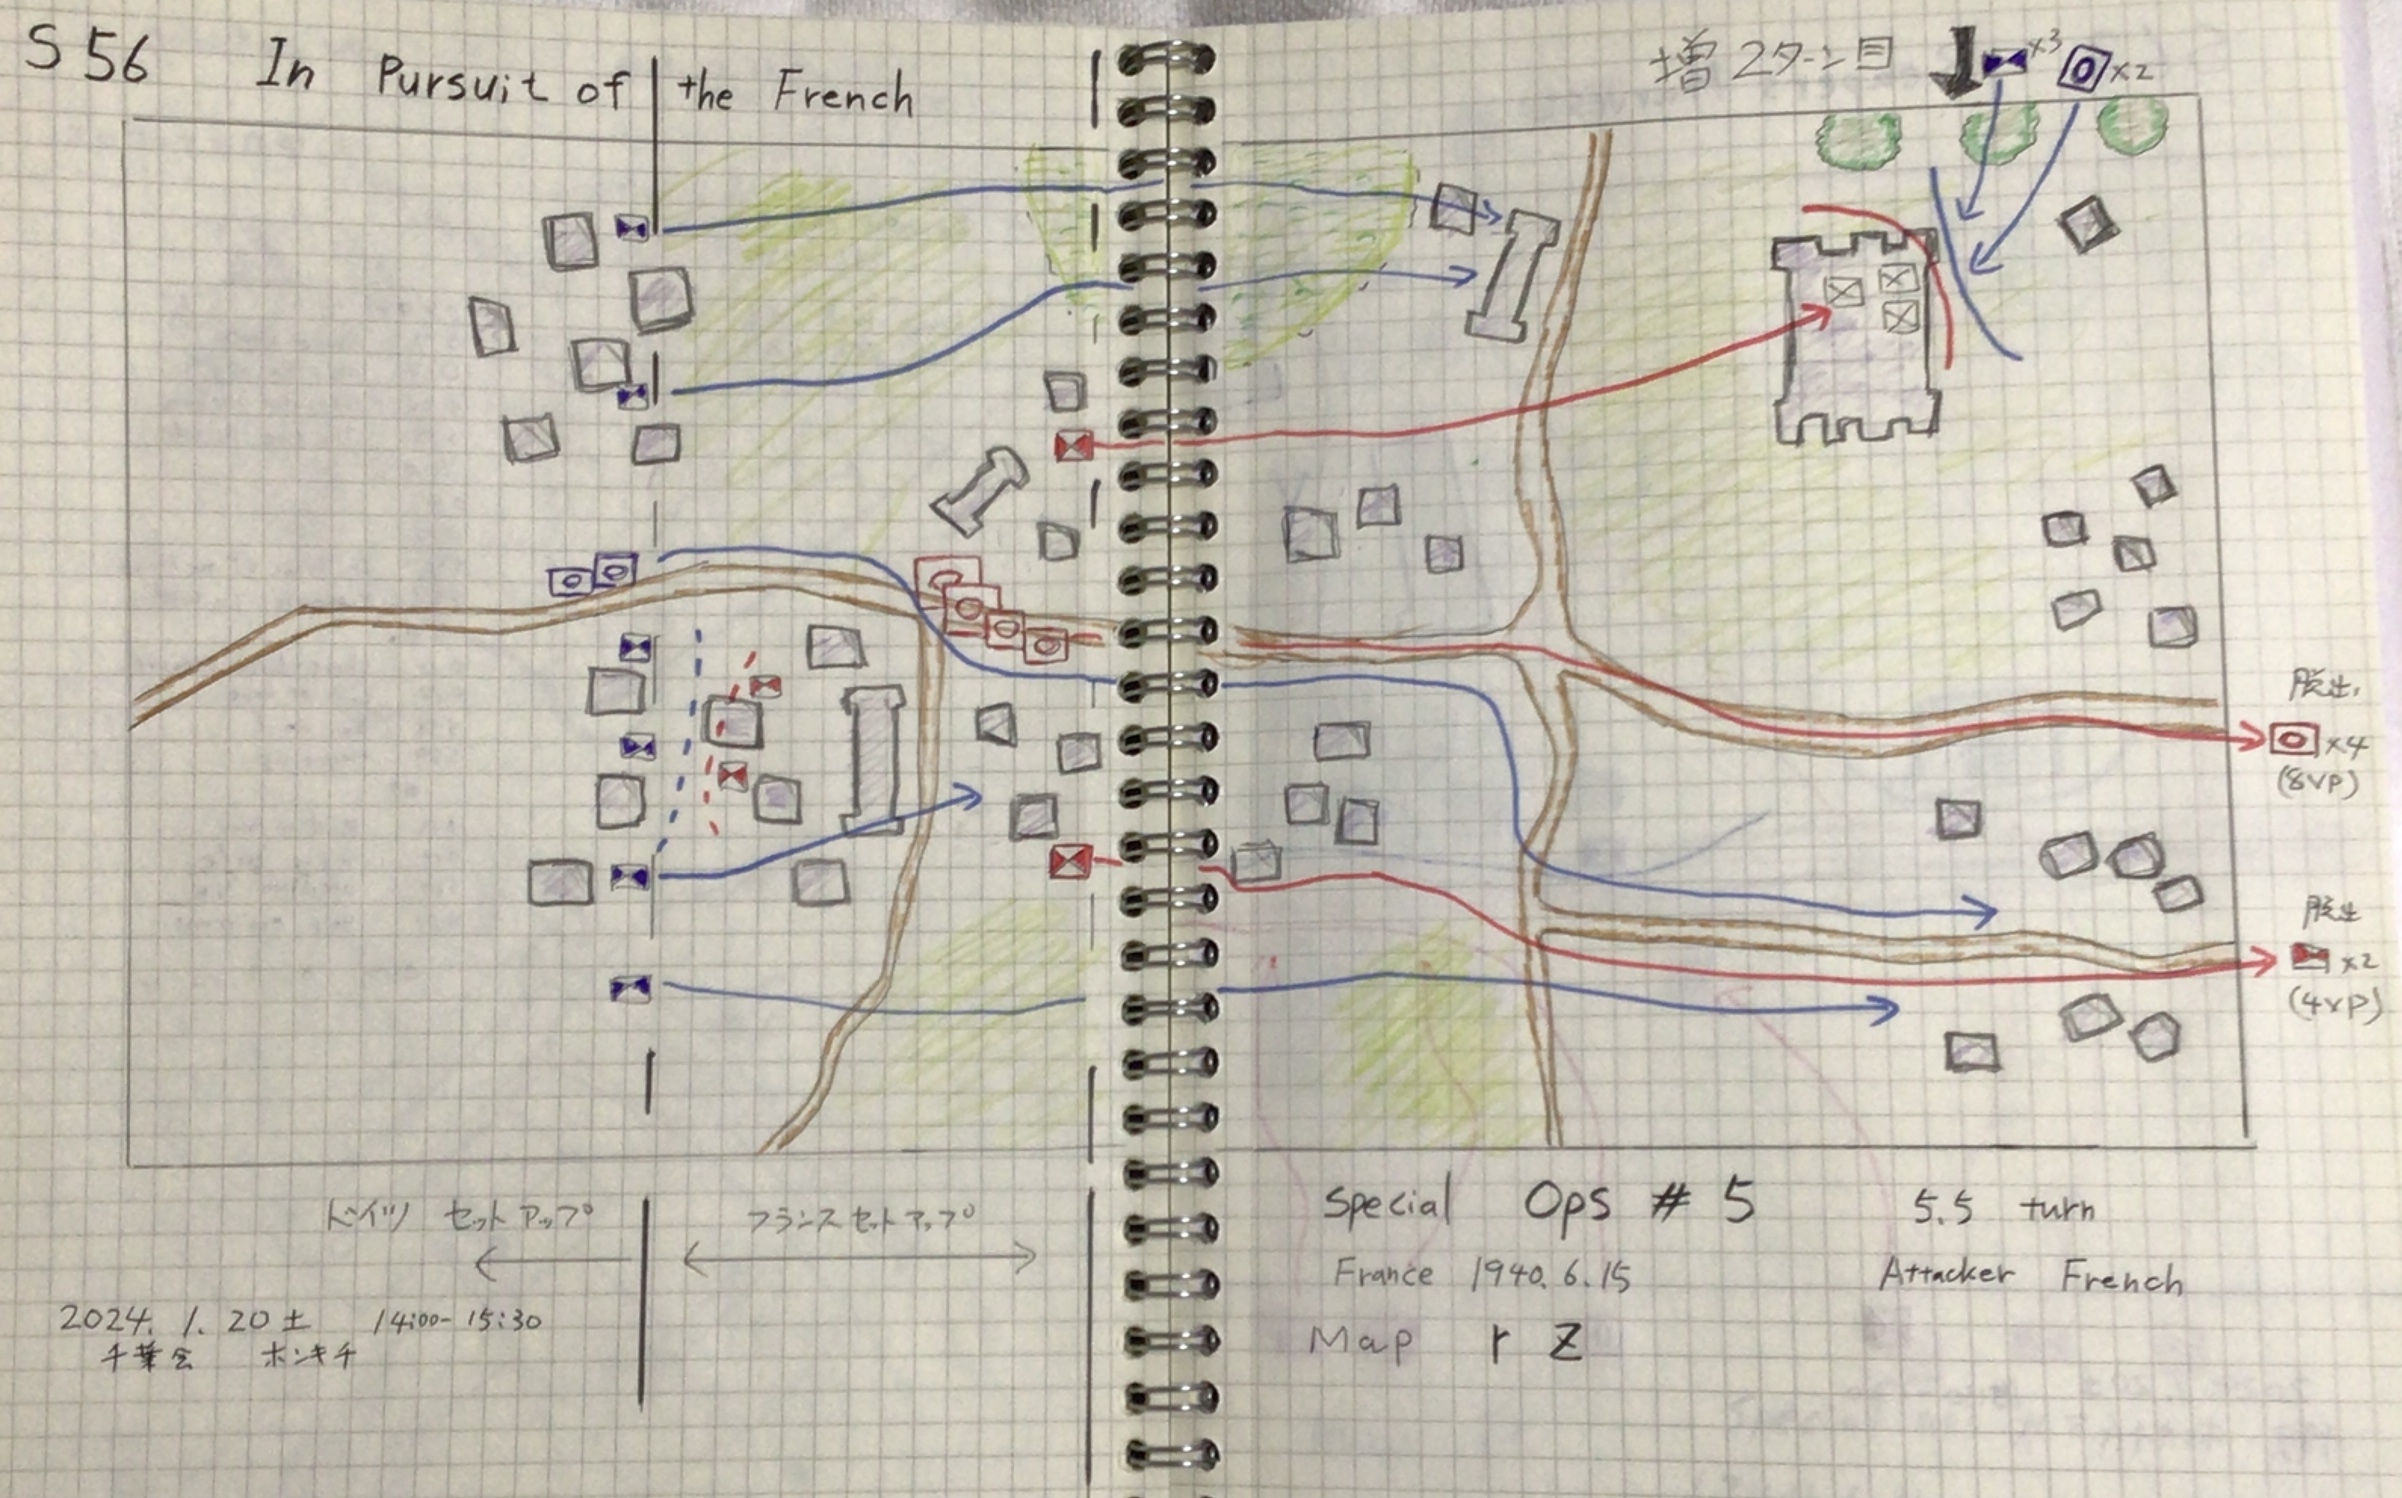 S56 In Pursuit of the French
増 2ターン目 ×3 ×2
脱出
×4
(8VP)
脱出
×2
(4VP)
ドイツ セットアップ
フランスセットアップ
Special Ops # 5 5.5 turn
France 1940.6.15 Attacker French
Map r Z
2024. 1. 20土 14:00-15:30
千葉会 ホンキチ